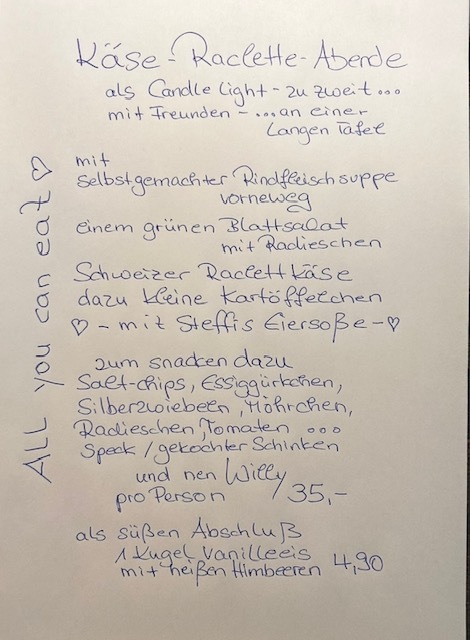 Käse-Raclette-Abende
als Candle Light - zu zweit...
mit Freunden - ...an einer
Langen Tafel
mit
selbstgemachter Rindfleischsuppe
vorneweg
einem grünen Blattsalat
mit Radieschen
Schweizer Raclettkäse
dazu kleine Kartöffelchen
♡ - mit Steffis Eiersoße - ♡
zum snacken dazu
Salt-chips, Essiggürkchen,
Silberzwiebeln, Möhrchen,
Radieschen, Tomaten ...
Speck / gekochter Schinken
und nen Willy
pro Person / 35,-
als süßen Abschluß
1 Kugel Vanilleeis
mit heißen Himbeeren 4,90
ALL you can eat ♡